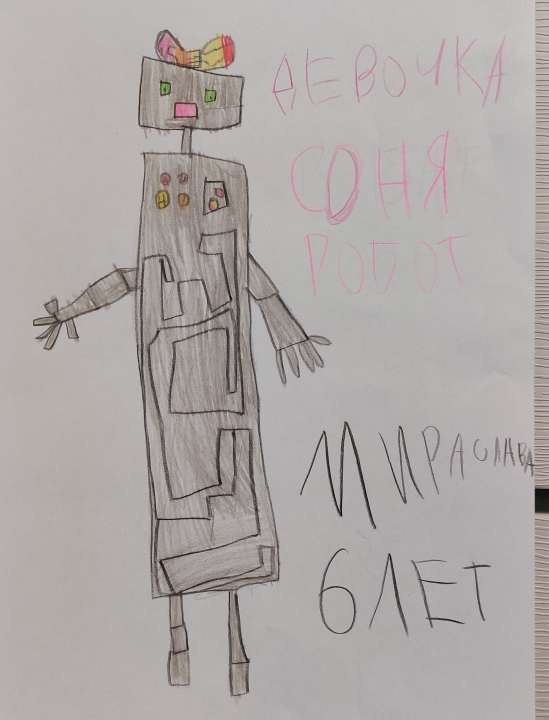 ДЕВОЧКА
СОНЯ
РОБОТ
МИРАСЛАВА
6 ЛЕТ